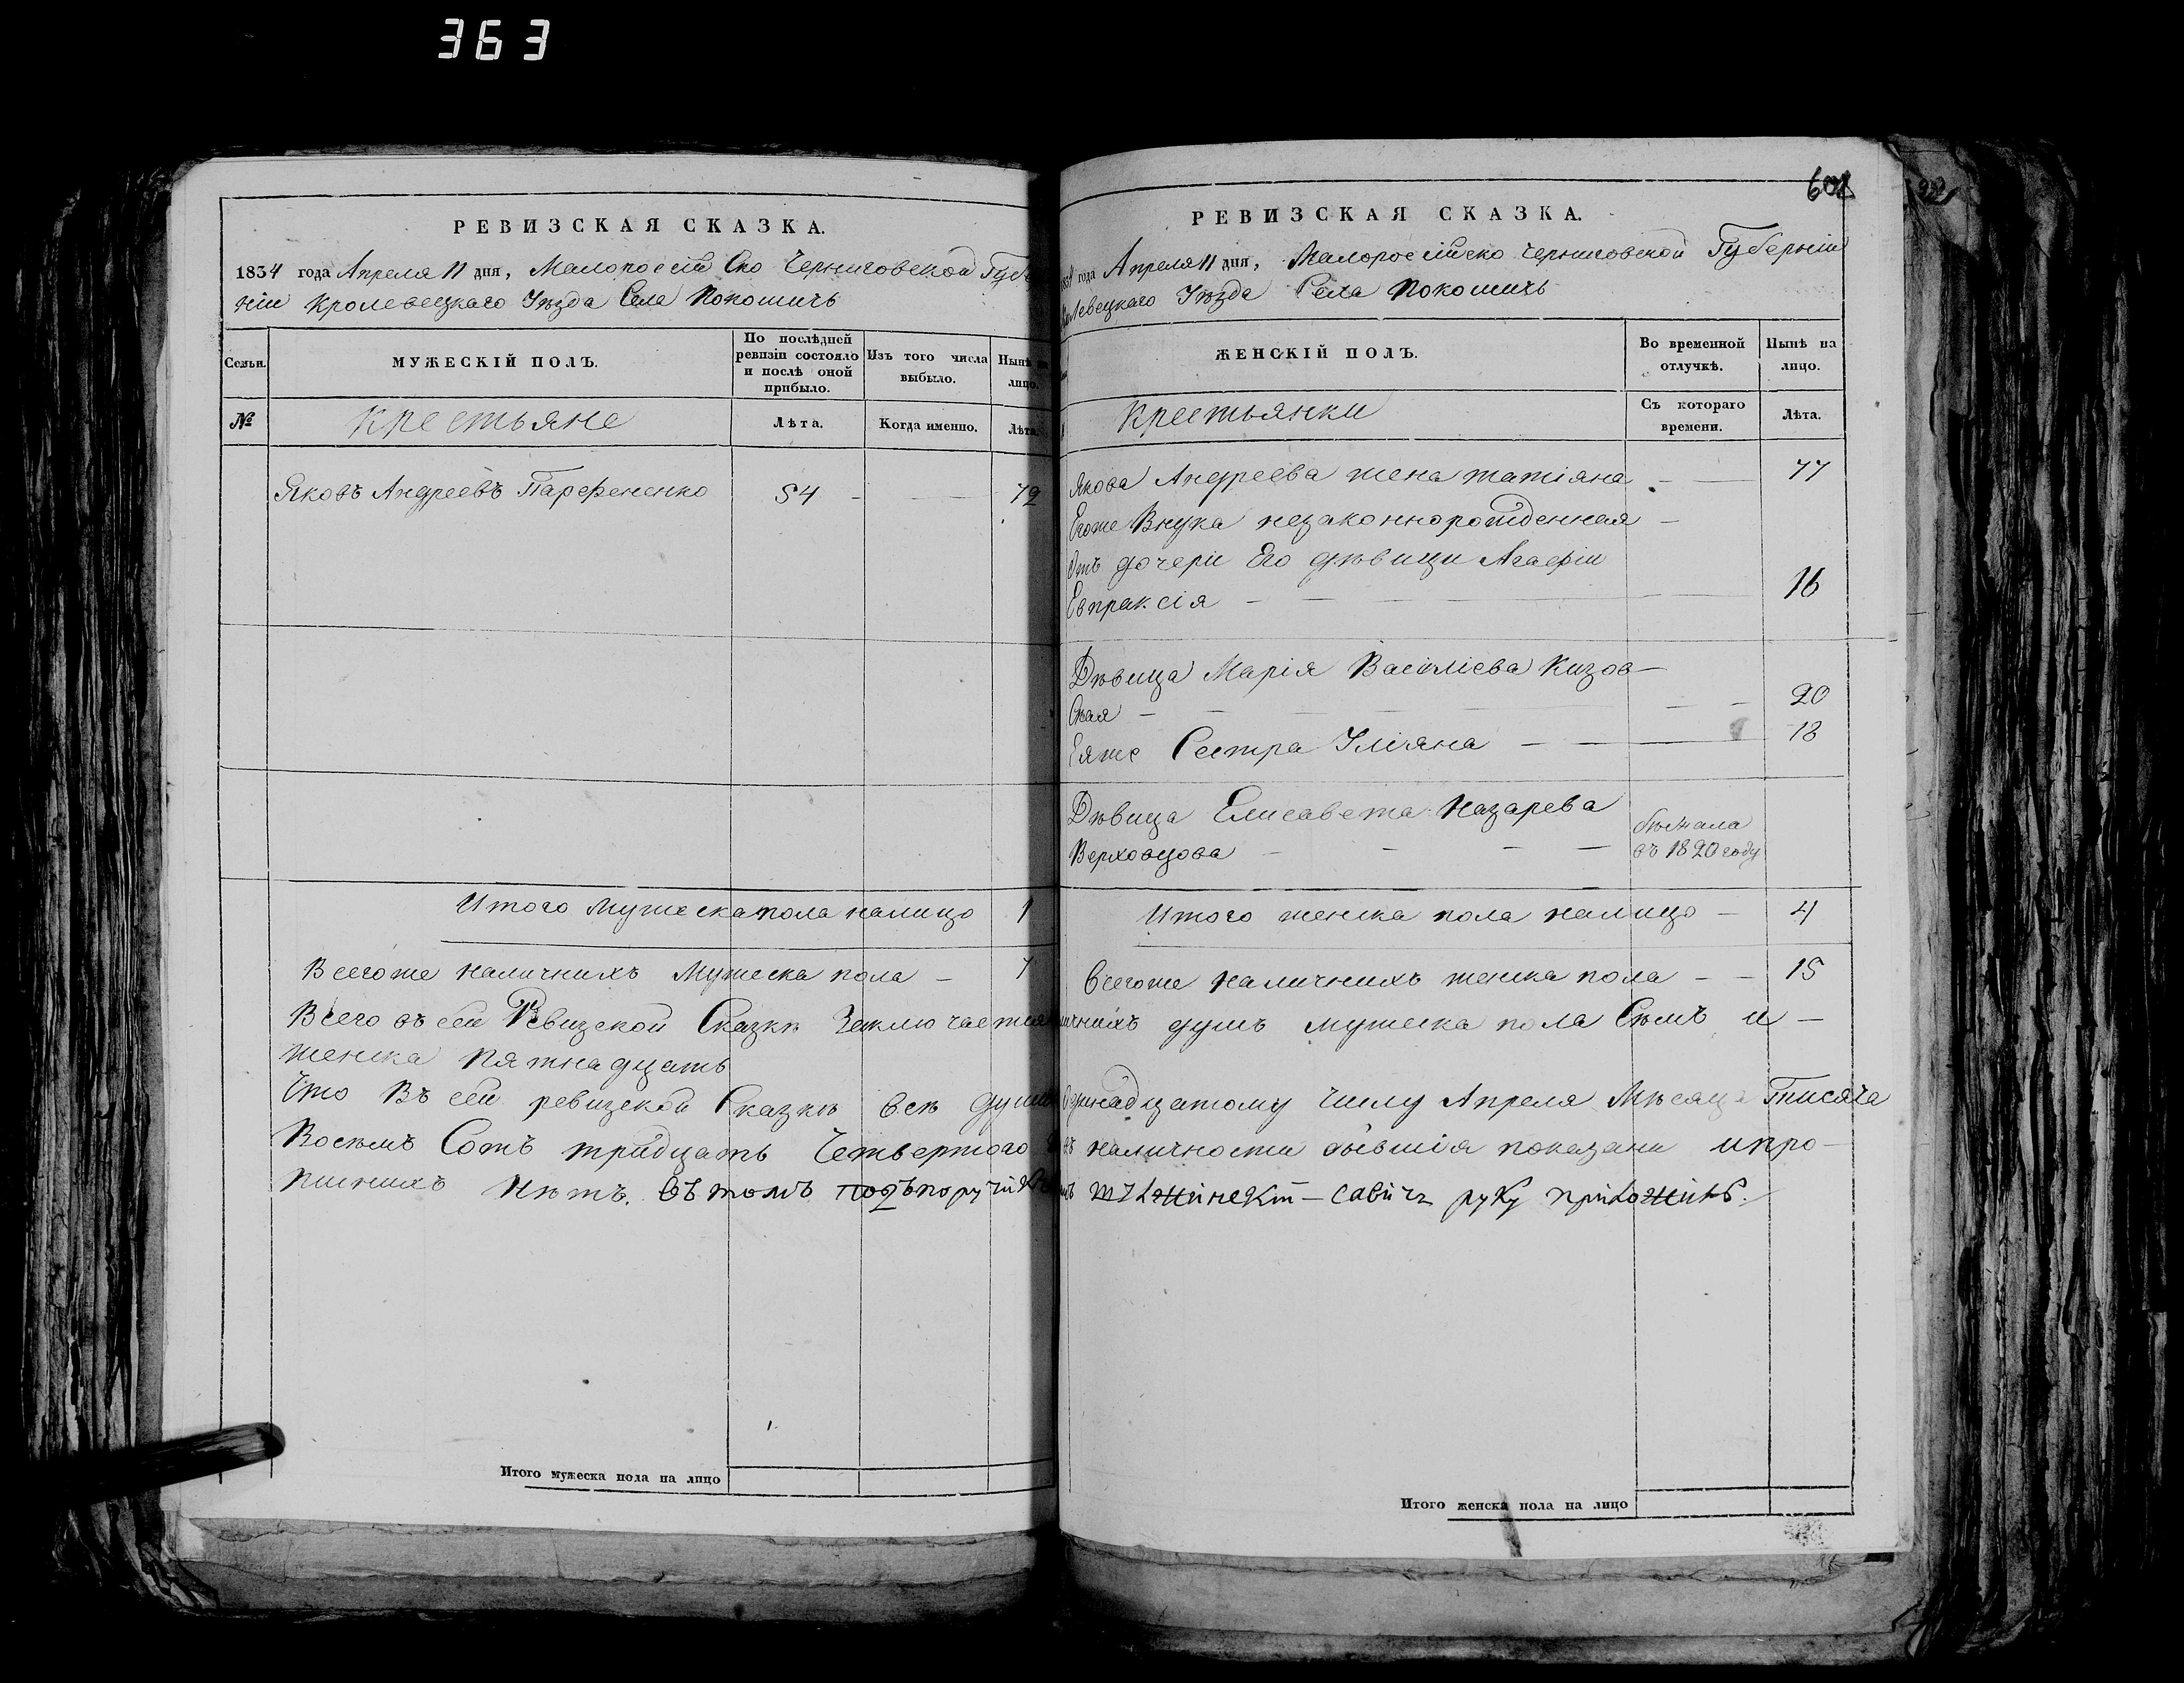 363
РЕВИЗСКАЯ СКАЗКА.
1834 года Апреля 11 дня, Малоросси Ско Черниговской Губер
ніи Кролевецкаго Уѣзда Села Покошичь
Семьи.
МУЖЕСКІЙ ПОЛЪ.
По послѣдней ревизіи состояло и послѣ оной прибыло.
Изъ того числа выбыло.
Нынѣ на лицо.
№
Крестьяне
Лѣта.
Когда именно.
Лѣта.
Яковъ Андреевъ Парфененко 54 - — 72
Итого Мужеска пола налицо 1
Всегоже наличнихъ Мужеска пола — 7
Всего въ сей Ревизской Сказкѣ Заключается
женска пятнадцать
Что Въ сей ревизской Сказкѣ всѣ души
Восемъ Сотъ тридцать Четвертого
писнихъ Нѣтъ. въ томъ подъпоручикъ
Итого мужеска пола на лицо
РЕВИЗСКАЯ СКАЗКА.
1834 года Апреля 11 дня, Малоросійско Черниговской Губерніи
левецкаго Уѣзда Села Покошичь
ЖЕНСКІЙ ПОЛЪ.
Во временной отлучкѣ.
Нынѣ на лицо.
Крестьянки
Съ котораго времени.
Лѣта.
Якова Андреева жена татіяна — 77
Егоже Внука незаконнорожденная —
Отъ дочери Его дѣвици Агафіи
Евпраксія — — 16
Дѣвица Марія Василіева Кизов—
ская — — 20
Еяже Сестра Уліяна — — 18
Дѣвица Елисавета Назарева
Верховцова — — — — бѣжала въ 1820 году
Итого женска пола налицо — 4
Всегоже наличнихъ женска пола — — 15
ичнихъ душъ мужеска пола Сѣмъ и —
Одинадцатому числу Апреля Мѣсяца Тисяча
наличности бывшія показани и про—
савичъ руку приложилъ.
Итого женска пола на лицо